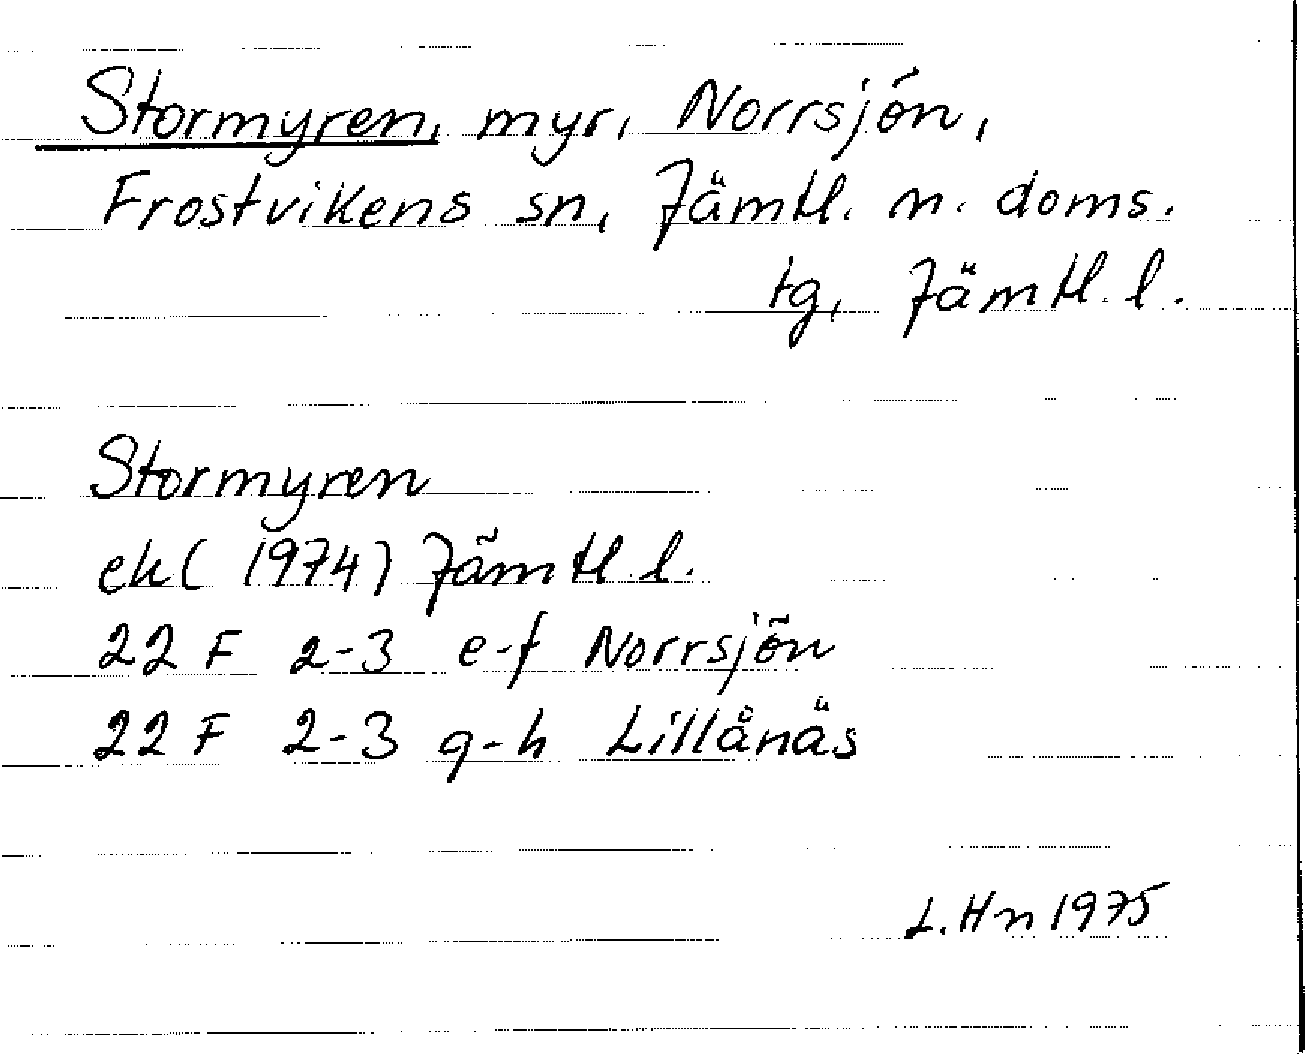 Stormyren, myr, Norrsjön,
Frostvikens sn, Jämtl. n. doms.
tg, Jämtl. l.
Stormyren
ek (1974) Jämtl. l.
22 F 2-3 e-f Norrsjön
22 F 2-3 g-h Lillånäs
L. Hn 1975